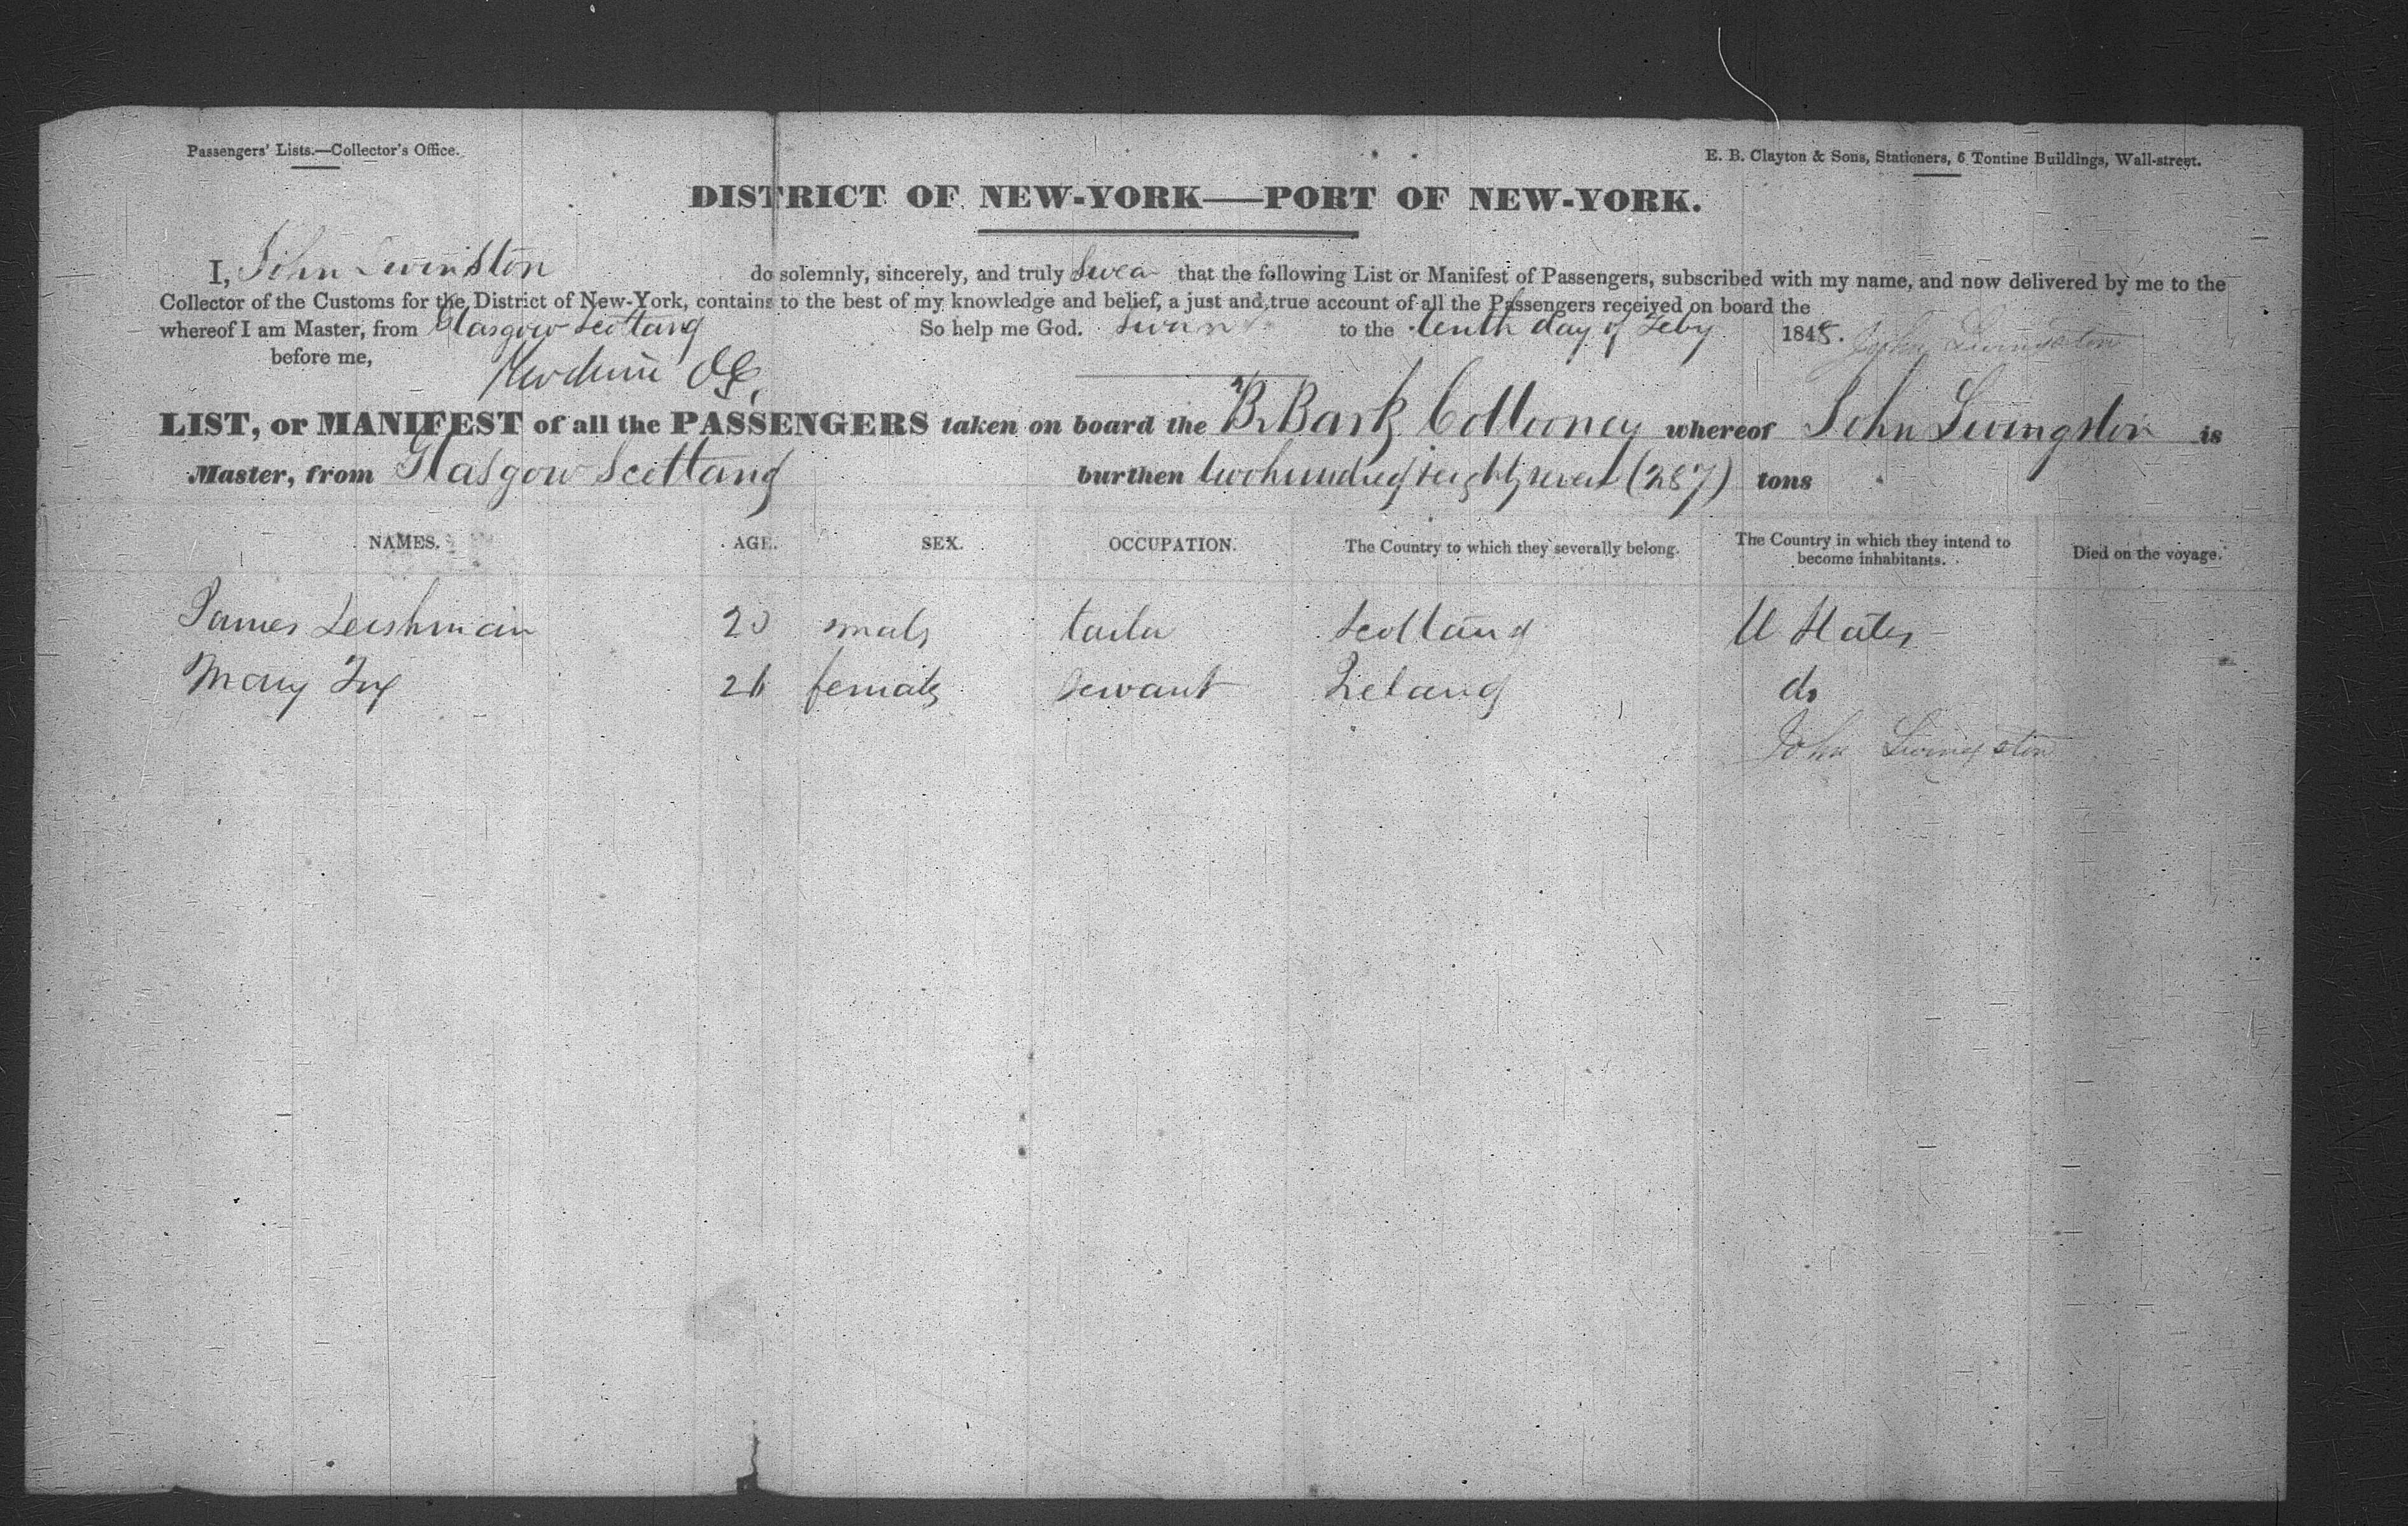 Passengers' Lists.—Collector's Office.
E. B. Clayton & Sons, Stationers, 6 Tontine Buildings, Wall-street.
DISTRICT OF NEW-YORK—PORT OF NEW-YORK.
I, John Livinston do solemnly, sincerely, and truly swear that the following List or Manifest of Passengers, subscribed with my name, and now delivered by me to the
Collector of the Customs for the District of New-York, contains to the best of my knowledge and belief, a just and true account of all the Passengers received on board the
whereof I am Master, from Glasgow Scotland So help me God. Sworn to the tenth day of Feby 1848. John Livingston
before me,
LIST, or MANIFEST of all the PASSENGERS taken on board the Br Bark Collooney whereof John Livingston is
Master, from Glasgow Scotland burthen two hundred eighty seven (287) tons
NAMES. AGE. SEX. OCCUPATION. The Country to which they severally belong. The Country in which they intend to become inhabitants. Died on the voyage.
James Leishman 20 male tailor Scotland U States
Mary Fox female servant Ireland do
John Livingston